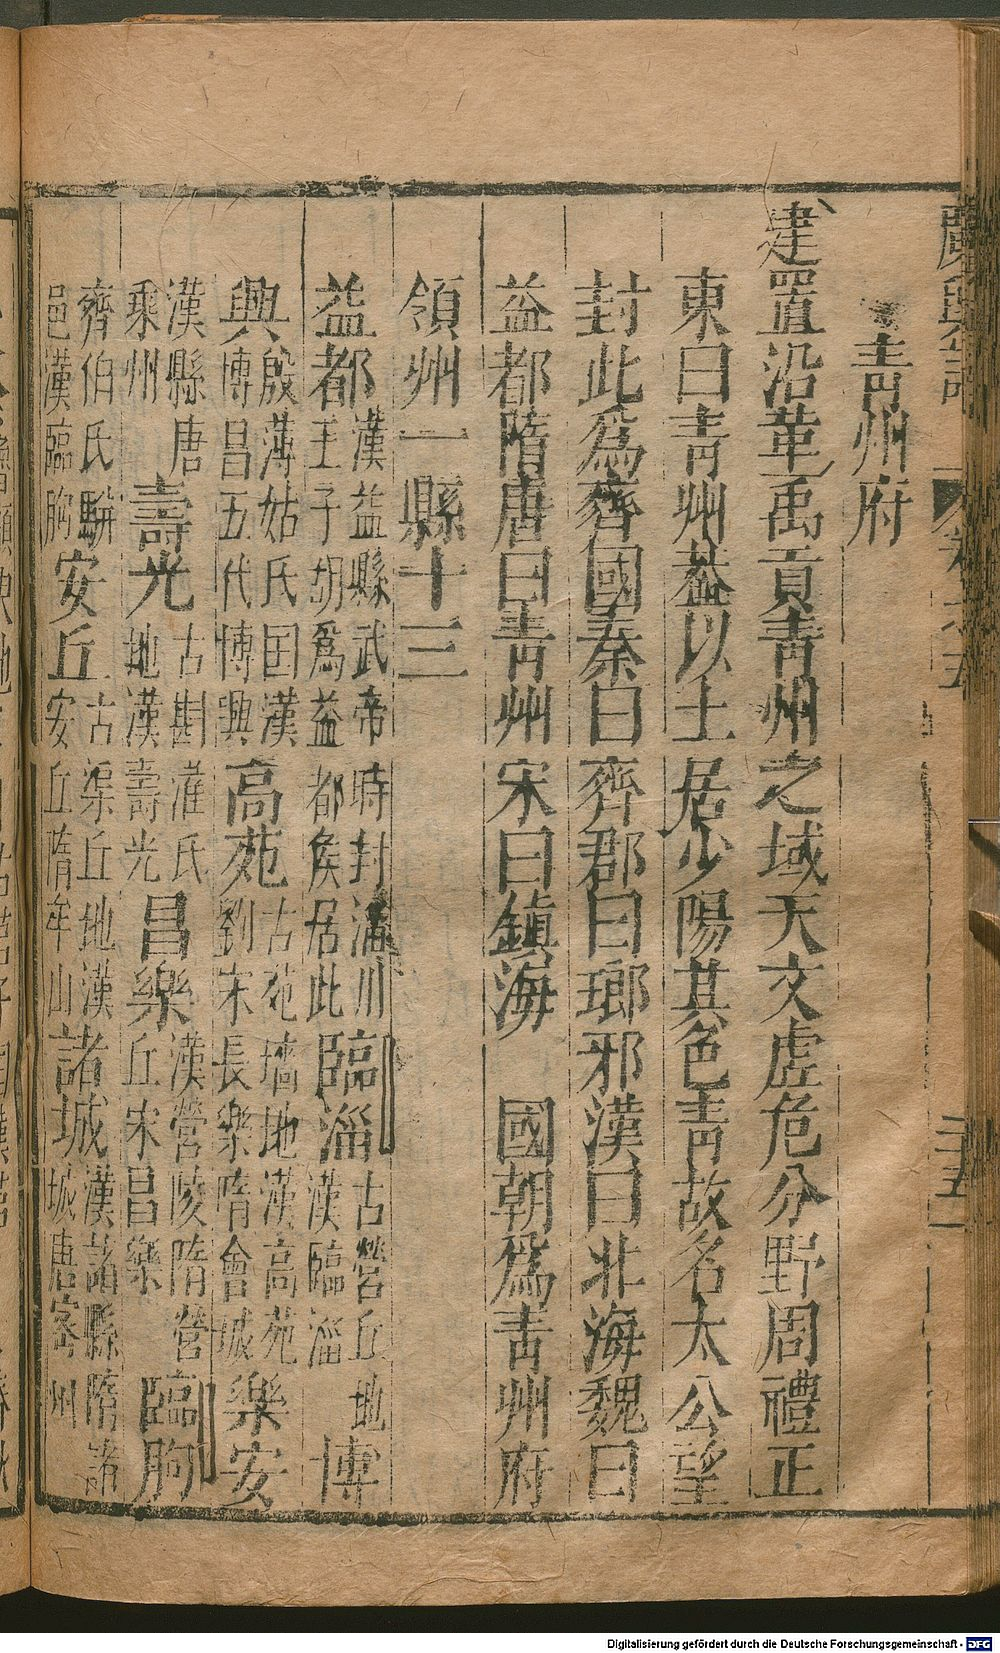 廣輿記
青州府
建置沿革禹貢青州之域天文虛危分野周禮正
東曰青州蓋以土居少陽其色青故名太公望
封此為齊國秦曰齊郡曰瑯邪漢曰北海魏曰
益都隋唐曰青州宋曰鎮海　國朝為青州府
領州一縣十三
益都漢益縣武帝時封淄川王子胡為益都侯居此臨淄古營丘地漢臨淄博
興殷薄姑氏囯漢博昌五代博興高苑古苑墻地漢高苑劉宋長樂隋會城樂安
漢縣唐乘州壽光古斟灌氏地漢壽光昌樂漢營陵隋營丘宋昌樂臨朐
齊伯氏駢邑漢臨朐安丘古渠丘地漢安丘隋牟山諸城漢諸縣隋諸城唐密州
Digitalisierung gefördert durch die Deutsche Forschungsgemeinschaft - DFG